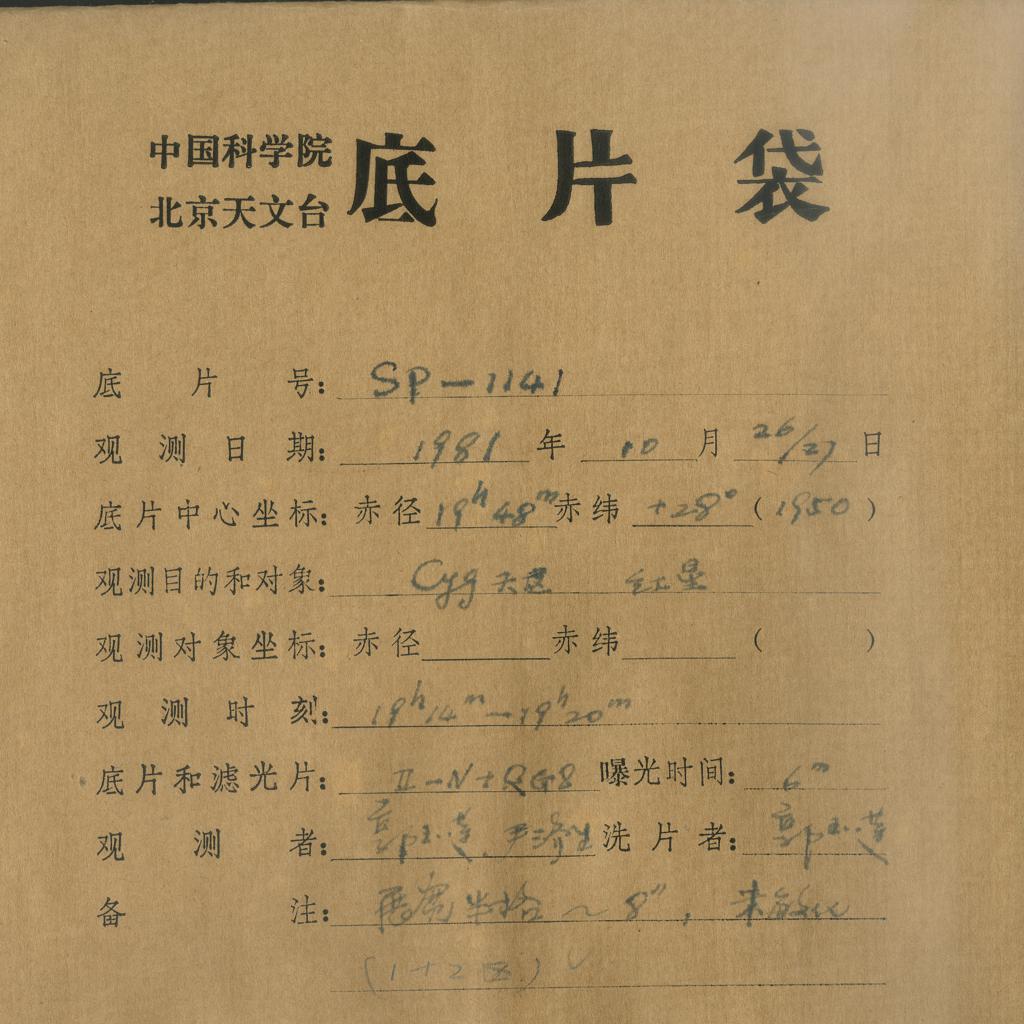 中国科学院
北京天文台 底片袋
底片号: SP-1141
观测日期: 1981 年 10 月 26/27 日
底片中心坐标: 赤径 19h 48m 赤纬 +28° (1950)
观测目的和对象: Cyg 天区 红星
观测对象坐标: 赤径 赤纬 ( )
观测时刻: 19h14m-19h20m
底片和滤光片: II-N+RG8 曝光时间: 6m
观测者: 郭玉莲、尹济生 洗片者: 郭玉莲
备注: 半 ~ 8", 未敏化
(1+2区)